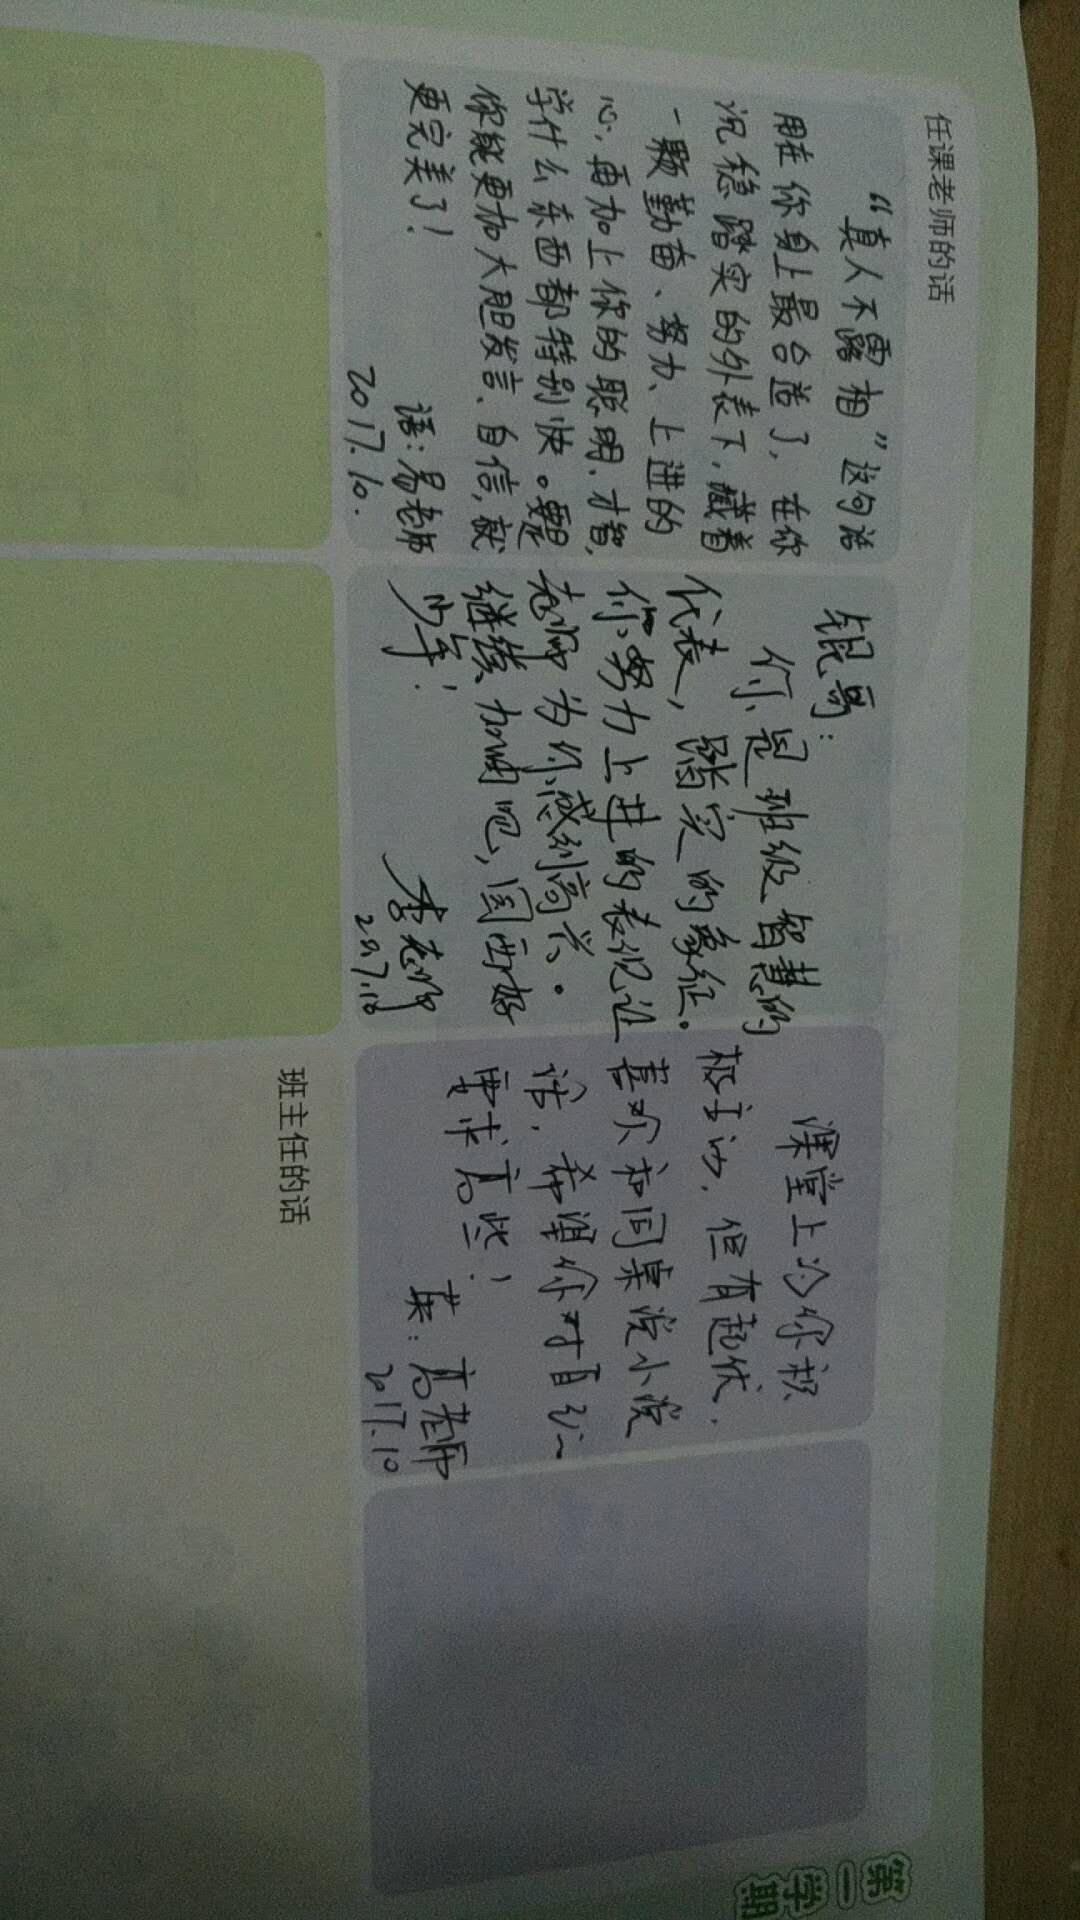 第一学期
任课老师的话
“真人不露相”这句话
用在你身上最合适了，在你
沉稳踏实的外表下，藏着
一颗勤奋、努力、上进的
心，再加上你的聪明、才智，
学什么东西都特别快。要是
你能更加大胆发言、自信，就
更完美了！
语：易老师
2017.10.
锟哥：
你是班级智慧的
代表，踏实的象征。
你努力上进的表现让
老师为你感到高兴。
继续加油吧，国西好
少年！
李老师
2017.10
课堂上的你积
极主动，但有起伏，
喜欢和同桌说小说
话，希望你对自己
要求高些！
英：高老师
2017.10
班主任的话